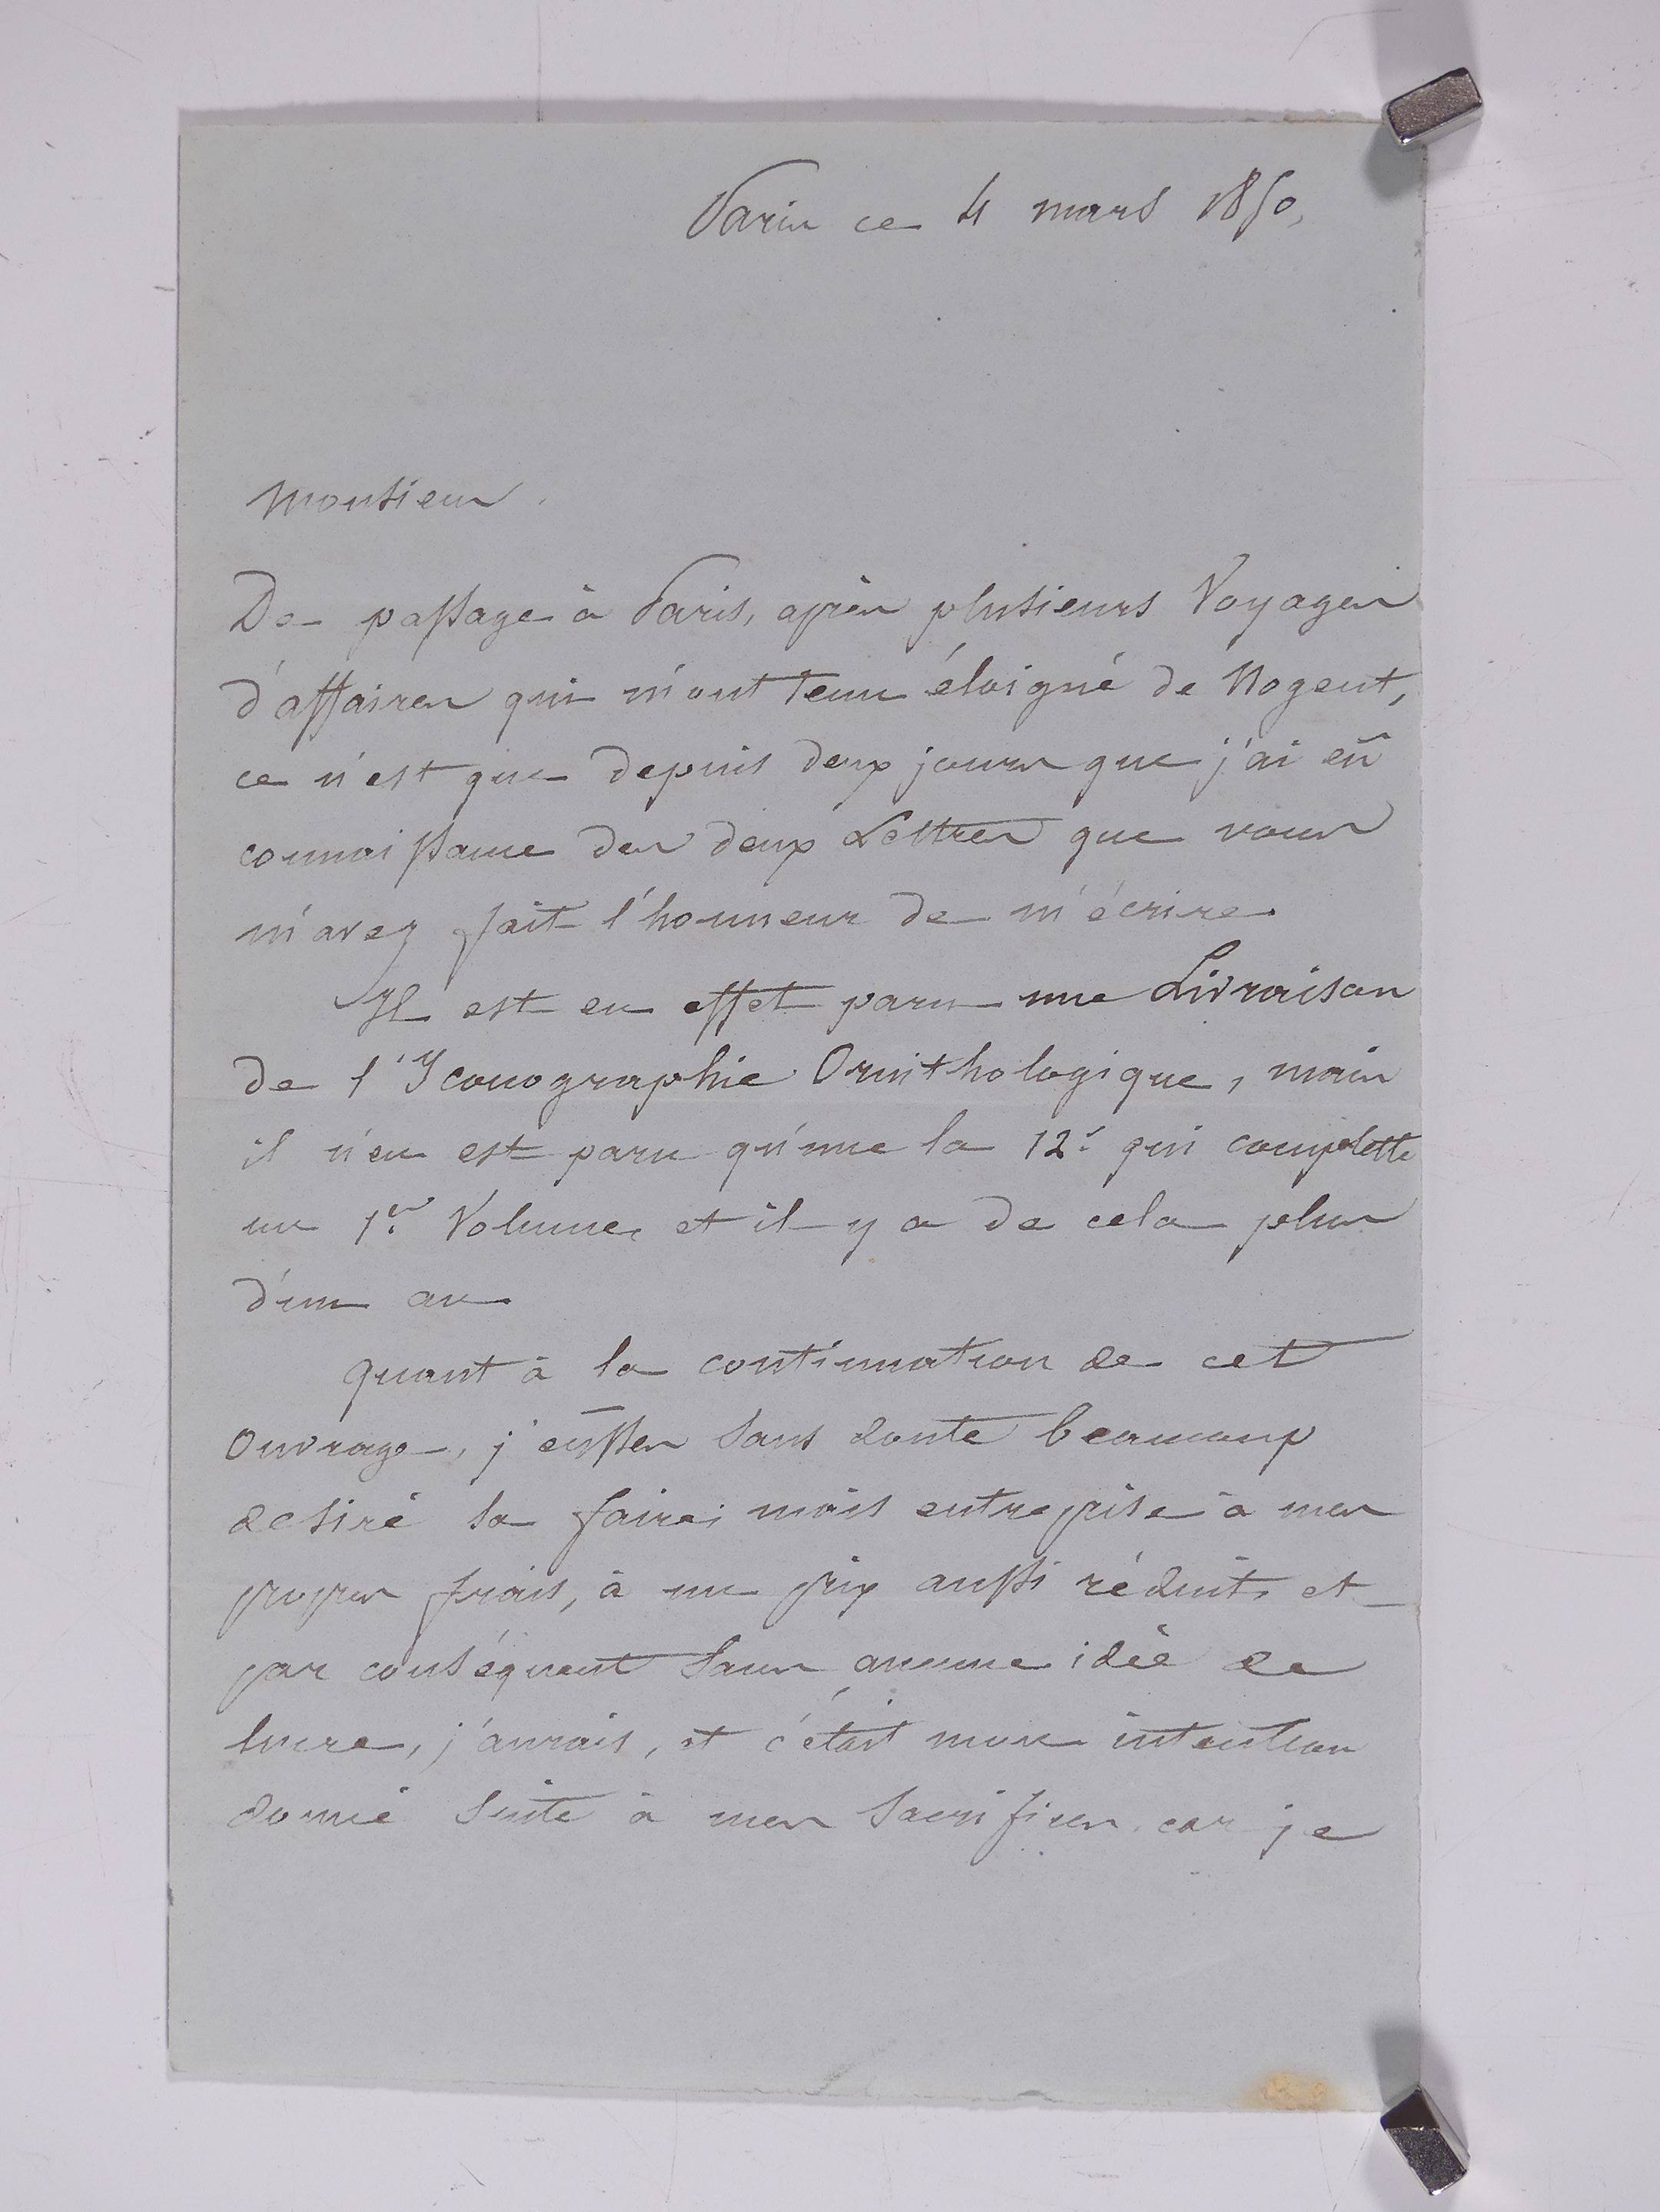 Paris ce 4 mars 1850,
Monsieur.
De passage à Paris, après plusieurs Voyages
d'affaires qui m'ont tenu éloigné de Nogent,
ce n'est que depuis deux jours que j'ai eû
connaissance des deux Lettres que vous
m'avez fait l'honneur de m'écrire.
Il est en effet paru une Livraison
de l'Iconographie Ornithologique, mais
il n'en est paru qu'une la 12e qui complette
un 1er Volume, et il y a de cela plus
d'un an.
quant à la continuation de cet
Ouvrage, j'eusses sans doute beaucoup
desiré la faire; mais entreprise à mes
propres frais, à un prix aussi réduit, et
par conséquent sans aucune idée de
lucre, j'aurais, et c'était mon intention
donné suite à mes sacrifices, car je